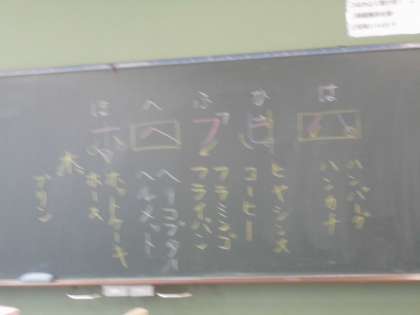 は
ハ
ハンバーグ
ハンカチ
ひ
ヒ
ヒヤシンス
コーヒー
ふ
フ
フラミンゴ
フライパン
へ
ヘ
ヘリコプター
ヘルメット
ほ
ホ
ホットケーキ
ホース
木
プリン